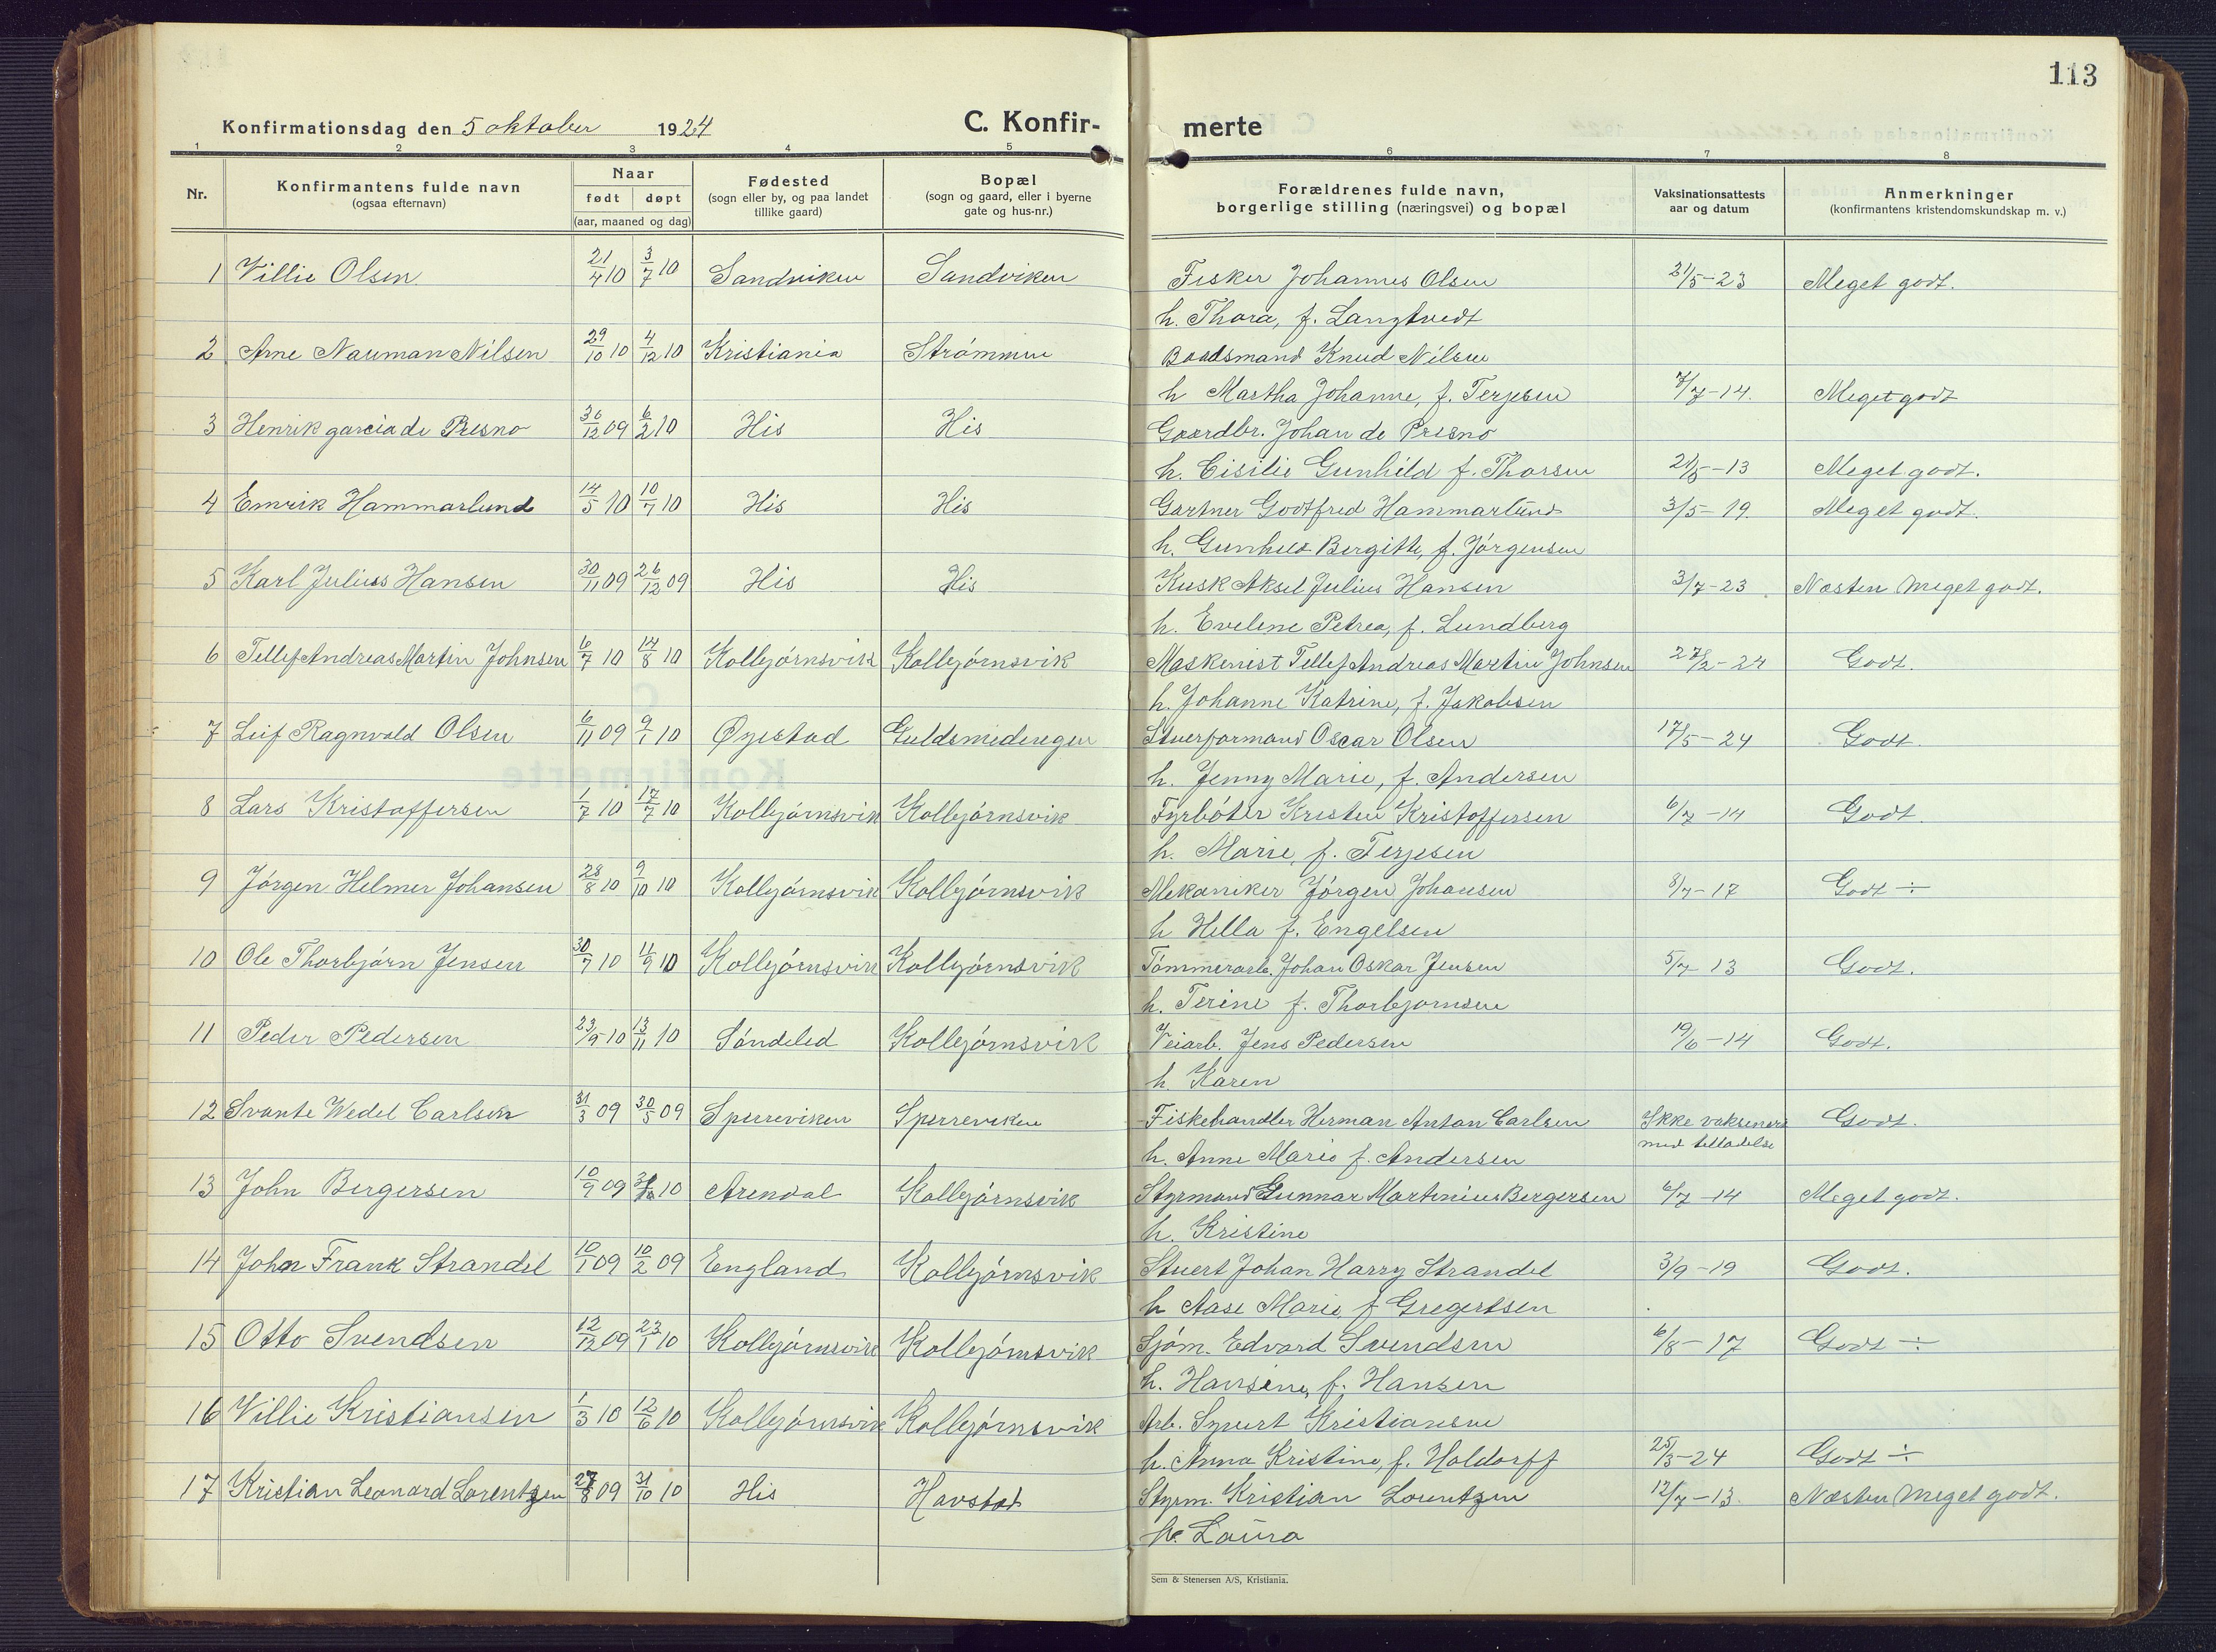 113
Konfirmationsdag den 5 oktober 1924 C. Konfir- merte
1 2 3 4 5 6 7 8
Nr. Konfirmantens fulde navn (ogsaa efternavn) Naar født døpt (aar, maaned og dag) Fødested (sogn eller by, og paa landet tillike gaard) Bopæl (sogn og gaard, eller i byerne gate og hus-nr.) Forældrenes fulde navn, borgerlige stilling (næringsvei) og bopæl Vaksinationsattests aar og datum Anmerkninger (konfirmantens kristendomskundskap m. v.)
1 Villie Olsen 21/4 10 3/7 10 Sandviken Sandviken Fisker Johannes Olsen 21/5-23 Meget godt.
h. Thora, f. Langtvedt
2 Arne Nauman Nilsen 29/10 10 4/12 10 Kristiania Strømmen Baadsmand Knud Nilsen
h Martha Johanne, f. Terjesen 7/7-14. Meget godt
3 Henrik garciade Presno 30/12 09 6/2 10 His His Gaardbr. Johan de Presno
h. Cisilie Gunhild f. Thorsen 21/5-13 Meget godt.
4 Emrik Hammarlund 14/5 10 10/7 10 His His Gartner Godtfred Hammarlund 3/5-19. Meget godt.
h. Gunhild Bergitte, f. Jørgensen
5 Karl Julius Hansen 30/11 09 26/12 09 His His Kusk Aksel Julius Hansen 3/7-23 Næsten Meget godt.
h. Evelene Petrea, f. Lundberg
6 Tellef Andreas Martin Johnsen 6/7 10 14/8 10 Kolbjørnsvik Kolbjørnsvik Maskinist Tellef Andreas Martin Johnsen 27/2-24 Godt.
h. Johanne Katrine, f. Jakobsen
7 Leif Ragnvald Olsen 6/11 09 9/1 10 Øyestad Guldsmedengen Stuerformand Oscar Olsen 17/5-24 Godt.
h. Jenny Marie, f. Andersen
8 Lars Kristoffersen 1/7 10 17/7 10 Kolbjørnsvik Kolbjørnsvik Fyrbøter Kristen Kristoffersen 6/7-14 Godt.
h. Marie, f. Terjesen
9 Jørgen Helmer Johansen 28/8 10 9/10 10 Kolbjørnsvik Kolbjørnsvik Mekaniker Jørgen Johansen 8/7-17 Godt ÷
h Hella f. Engelsen
10 Ole Thorbjørn Jensen 30/7 10 11/9 10 Kolbjørnsvik Kolbjørnsvik Tømmerarb. Johan Oskar Jensen 5/7-13 Godt.
h. Terine f. Thorbjornsen
11 Peder Pedersen 23/9 10 13/11 10 Søndeled Kolbjørnsvik Veiarb. Jens Pedersen 19/6-14 Godt.
h. Karen
12 Svante Wedel Carlsen 31/3 09 30/5 09 Sperreviken Sperreviken Fiskehandler Herman Anton Carlsen Ikke vaksinert Godt.
h. Anne Marie f. Andersen med tilladelse
13 John Bergersen 10/9 09 10 Arendal Kolbjørnsvik Styrmand Gunnar Martinius Bergersen 6/7-14 Meget godt.
h. Kristine
14 John Frank Strandel 10/1 09 10/2 09 England Kolbjørnsvik Stuert Johan Harry Strandel 3/9-19 Godt.
h Aase Marie, f Gregertsen
15 Otto Svendsen 12/12 09 23/1 10 Kolbjørnsvik Kolbjørnsvik Sjøm. Edvard Svendsen 6/8-17 Godt ÷
h. Hansine, f. Hansen
16 Villie Kristiansen 1/3 10 12/6 10 Kolbjørnsvik Kolbjørnsvik Arb. Syvert Kristiansen
h. Anna Kristine, f. Holdorff 25/3-24 Godt ÷
17 Kristian Leonard Lorentzen 27/8 09 31/10 10 His Havstad Styrm. Kristian Lorentzen 12/7-13. Næsten Meget godt.
h. Laura
Sem & Stenersen A/S, Kristiania.